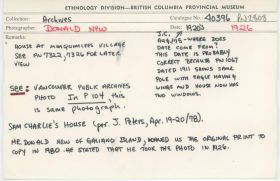 ETHNOLOGY DIVISION—BRITISH COLUMBIA PROVINCIAL MUSEUM
Collection: Archives Catalogue No. 40396 PN2808
Photographer: DONALD NEW Date: 1920s 1926
HOUSE AT VILLAGE
SEE PN 7323, 7326 FOR LATER
VIEW
J.C.
AUG/95 - WHERE DOES
DATE COME FROM?
THIS DATE IS PROBABLY
CORRECT BECAUSE PN 1067
DATED 1911 SHOWS SAME
POLE WITH EAGLE HAVING
WINGS AND HOUSE NOW HAS
TWO WINDOWS.
SEE: VANCOUVER PUBLIC ARCHIVES
PHOTO In P 104, THIS
IS SAME PHOTOGRAPH.
SAM CHARLIE'S HOUSE (per J. Peters, Apr. 19-20/78).
MR. DONALD NEW OF GALIANO ISLAND, LOANED US THE ORIGINAL PRINT TO
COPY IN 1980. HE STATED THAT HE TOOK THE PHOTO IN 1926.